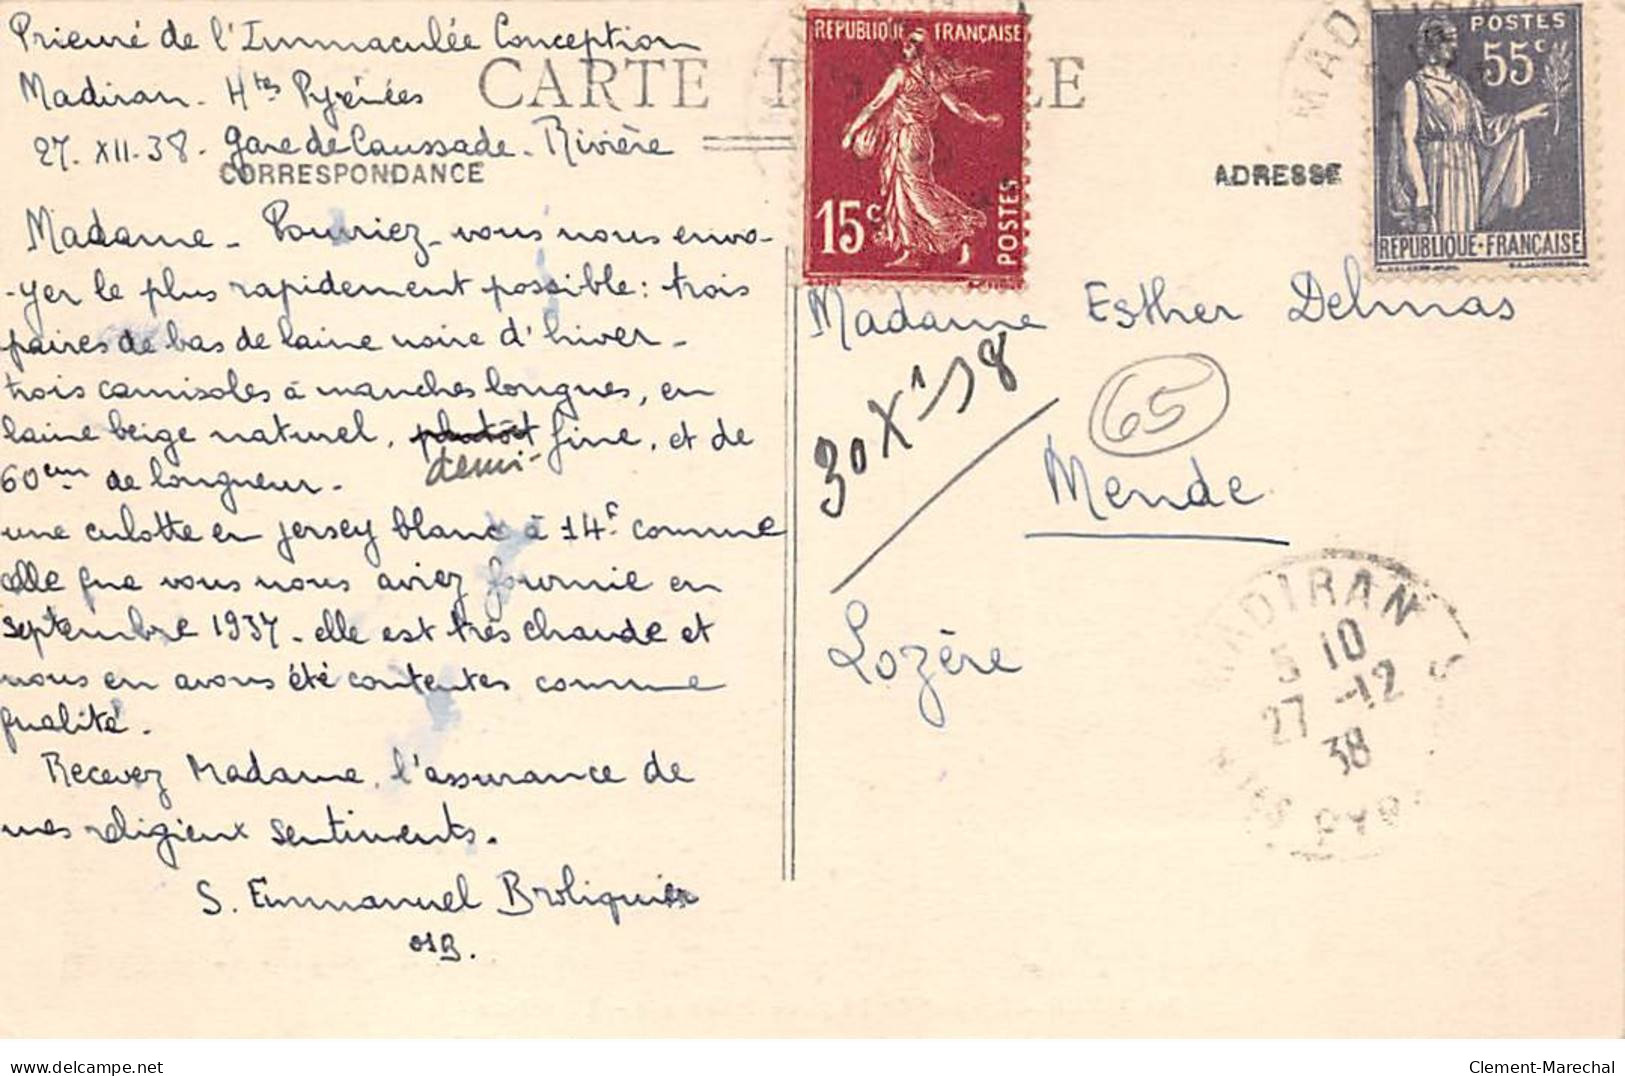 Prieuré de l'Immaculée Conception
Madiran. Htes Pyrénées
27. XII. 38. gare de Caussade. Rivière
CARTE
CORRESPONDANCE
Madame. Pourriez-vous nous envo-
-yer le plus rapidement possible: trois
paires de bas de laine noire d'hiver.
trois camisoles à manches longues, en
laine beige naturel, plutôt fine, et de
demi-
60cm de longueur.
une culotte en jersey blanc à 14f comme
celle que vous nous aviez fournie en
septembre 1937. elle est très chaude et
nous en avons été contentes comme
qualité.
Recevez Madame, l'assurance de
mes religieux sentiments.
S. Emmanuel Broliquier
OSB.
REPUBLIQUE FRANÇAISE
15c
POSTES
POSTES
55c
REPUBLIQUE·FRANÇAISE
MADIRAN
ADRESSE
Madame Esther Delmas
65
Mende
Lozère
MADIRAN
5 10
27 -12
38
Htes PYR
delcampe.net
Clement-Marechal